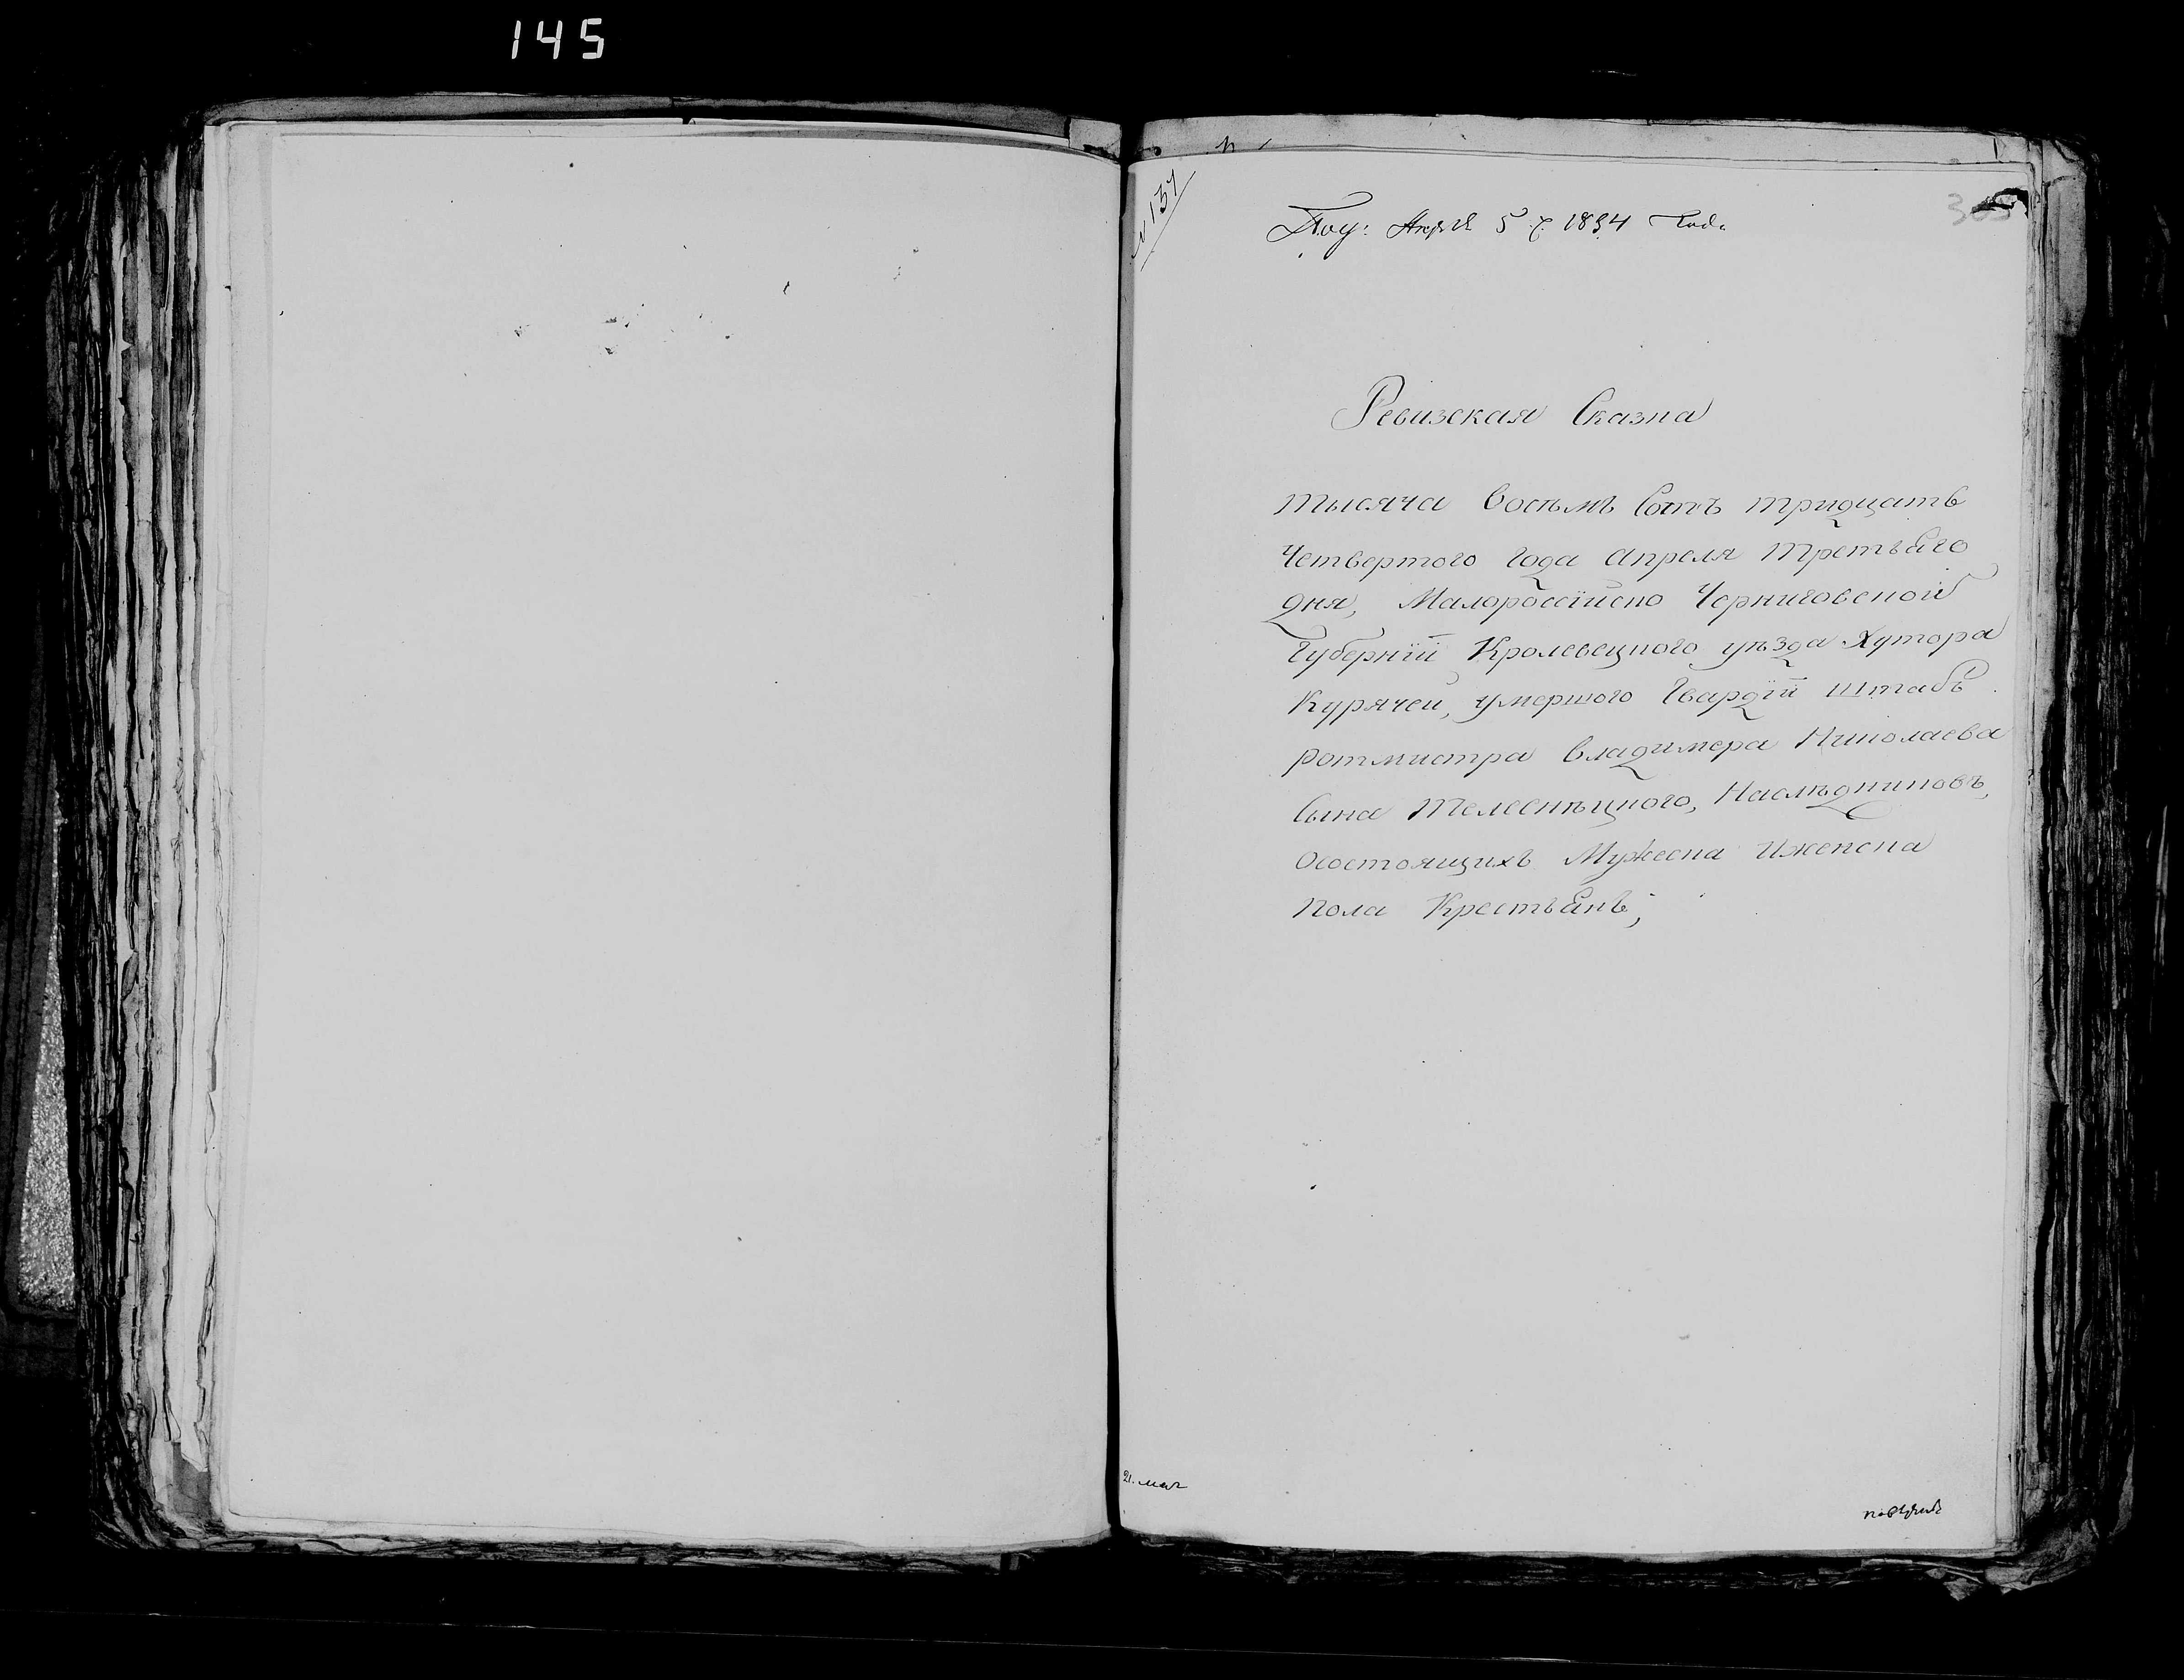 145
№ 137
Пол: Апреля 5 д. 1834 Года
Ревизская Сказка
тысяча восѣмъ Сотъ тридцать
Четвертого Года Апреля третьяго
дня, Малороссійско Черниговской
Губерніи Кролевецкого уѣзда Хутора
Курячей, умершого Гвардіи штабъ
ротмистра владимера Николаева
Сына Телеснѣцкого, Наслѣдниковъ,
Осостоящихъ Мужеска иженска
пола Крестьянъ;